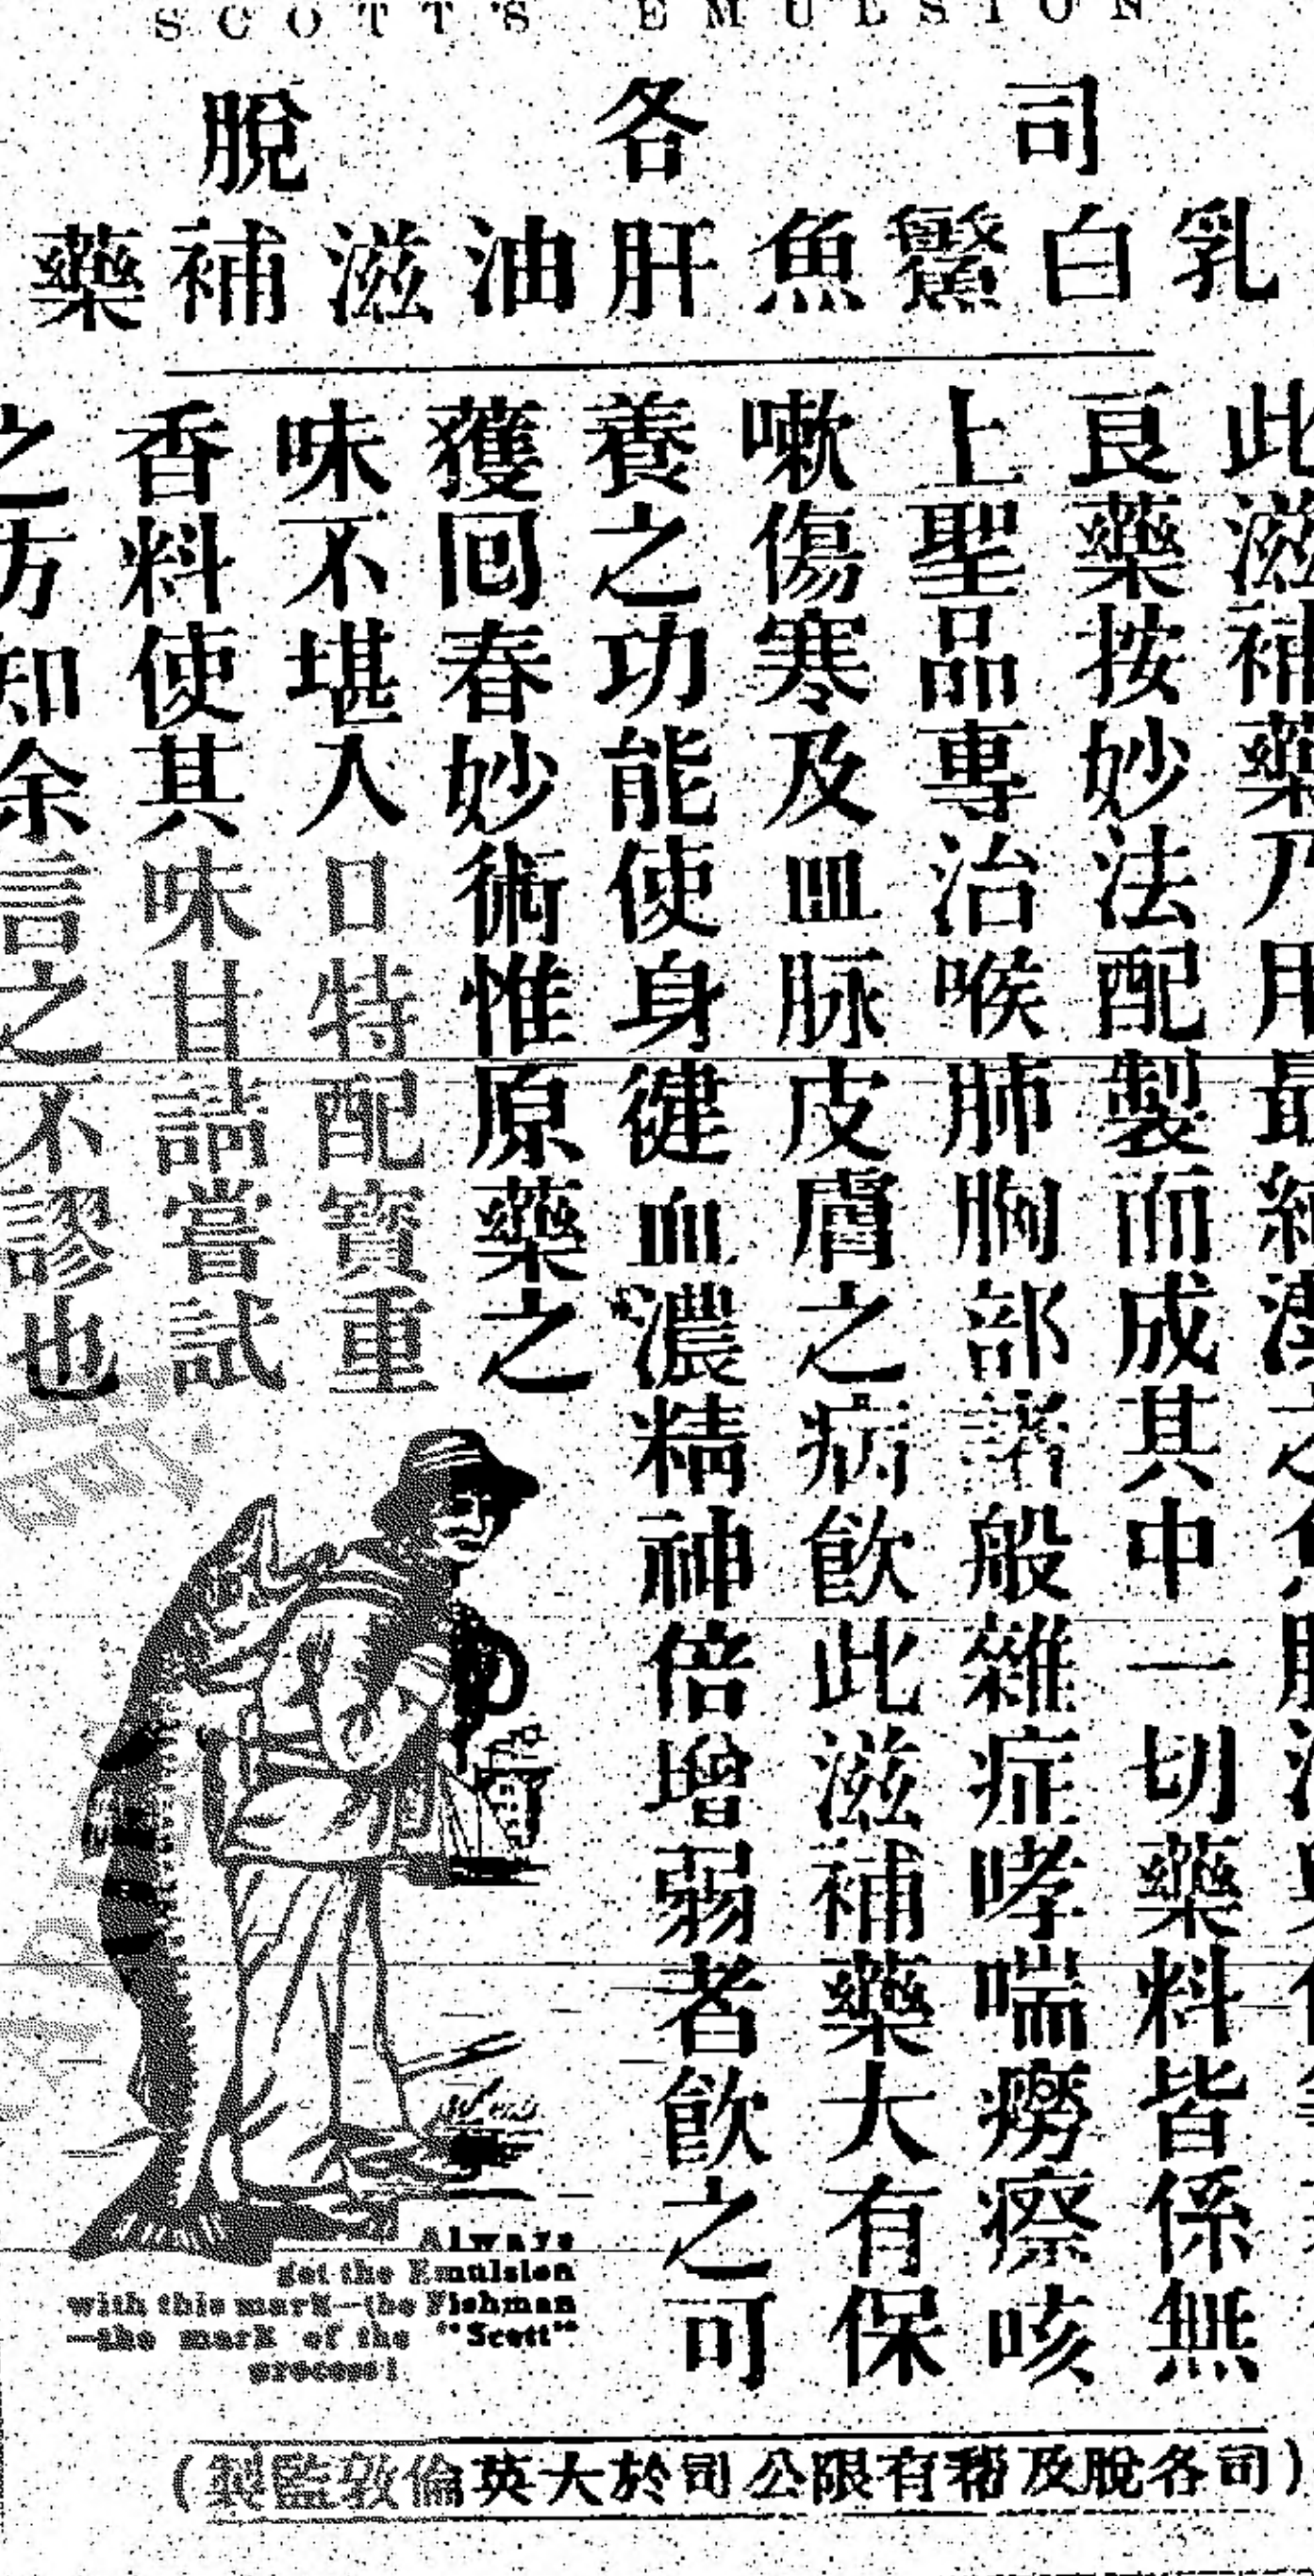 SCOTT'S EMULSION
司各脫
乳白鰵魚肝油滋補藥
此滋補藥乃用最純潔之魚
良藥按妙法配製而成其中一切藥料皆係無
上聖品專治喉肺胸部諸般雜症哮喘癆瘵咳
嗽傷寒及血脉皮膚之病飲此滋補藥大有保
養之功能使身健血濃精神倍增弱者飲之可
獲回春妙術惟原藥之
味不堪入口特配寳重
香料使其味甘請嘗試
之方知余言之不謬也
Always
get the Emulsion
with this mark—the Fishman
—the mark of the "Scott"
process!
(司各脫及幫有限公司於大英倫敦監製)